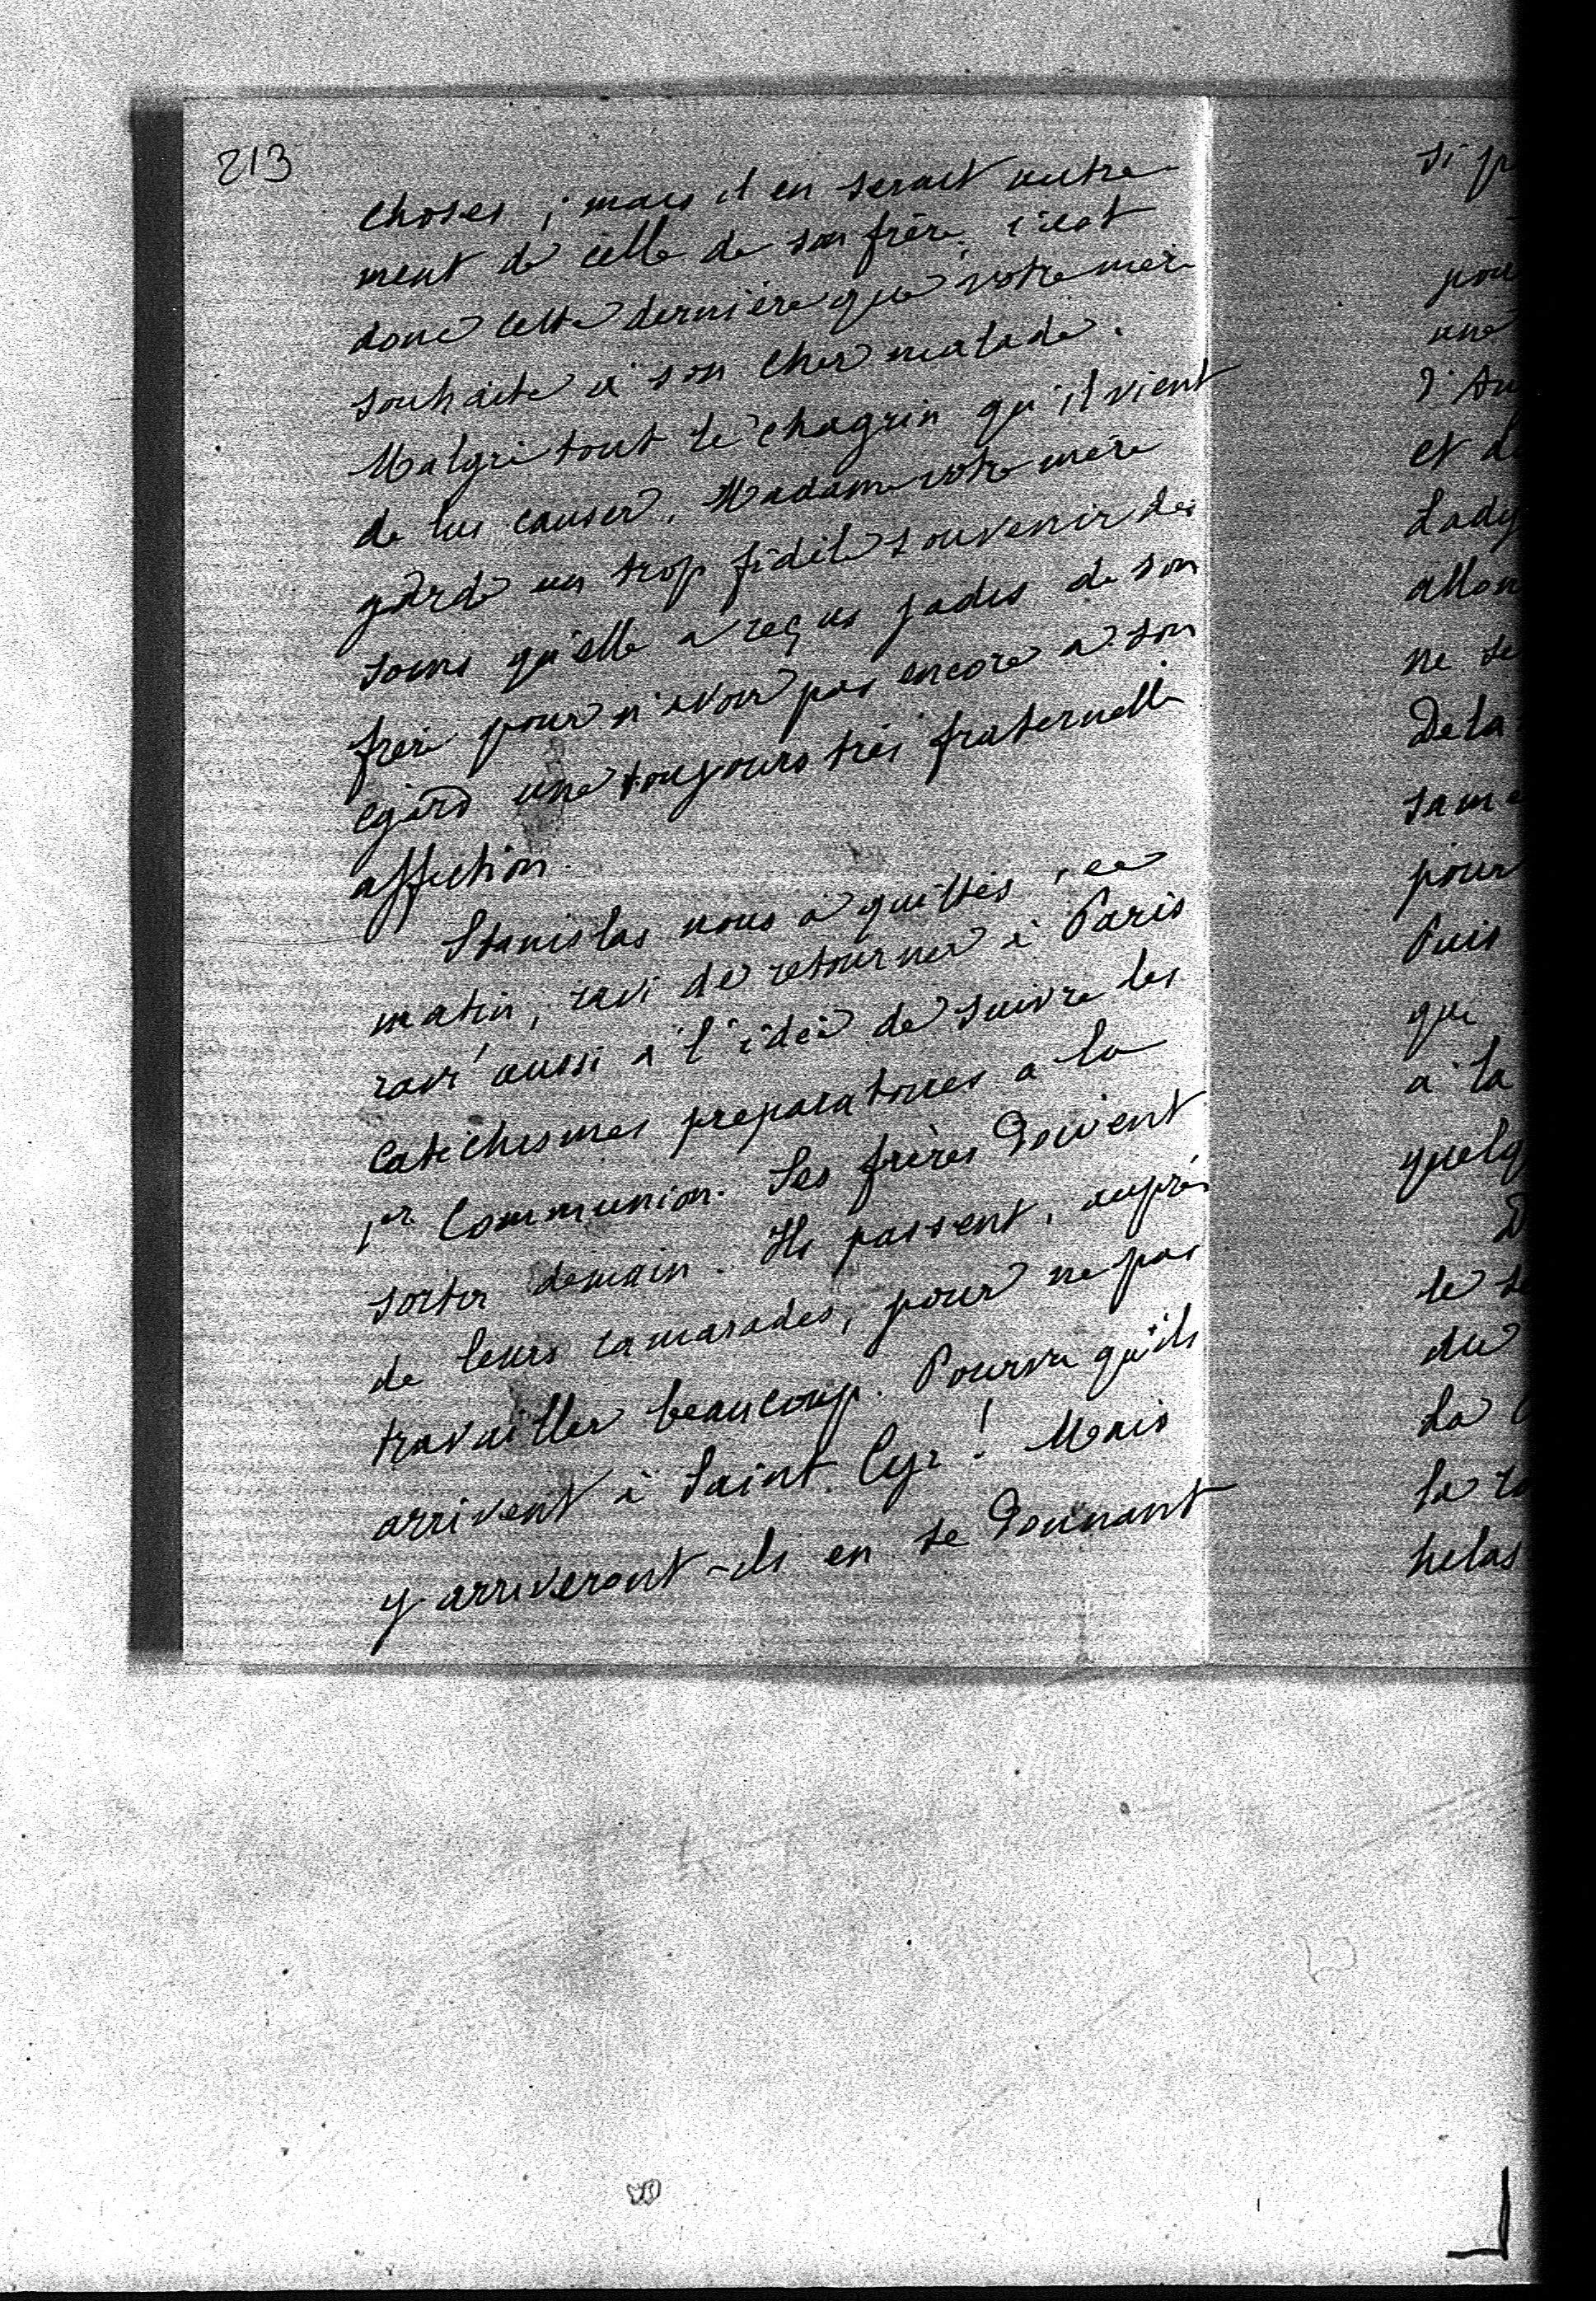 213
choses ; mais il en serait autre-
ment de celle de son frère, c'est
donc cette dernière que votre mère
souhaite à son cher malade.
Malgré tout le chagrin qu'il vient
de lui causer, Madame votre mère
garde un trop fidèle souvenir des
soins qu'elle a reçus jadis de son
frère pour n'avoir pas encore à son
égard une toujours très fraternelle
affection.
Stanislas nous a quittés, ce
matin, ravi de retourner à Paris
ravi aussi à l'idée de suivre les
catéchismes préparatoires à la
1er Communion. Ses frères doivent
sortir demain. Ils passent, auprès
de leurs camarades, pour ne pas
travailler beaucoup. Pourvu qu'ils
arrivent à Saint Cyr ! Mais
y arriveront-ils en se donnant
si p
pou
une
d'Au
et d
Lady
allon
ne se
De la
same
pour
Puis
qui
à la
quelq
D
le se
du
La
la ro
helas